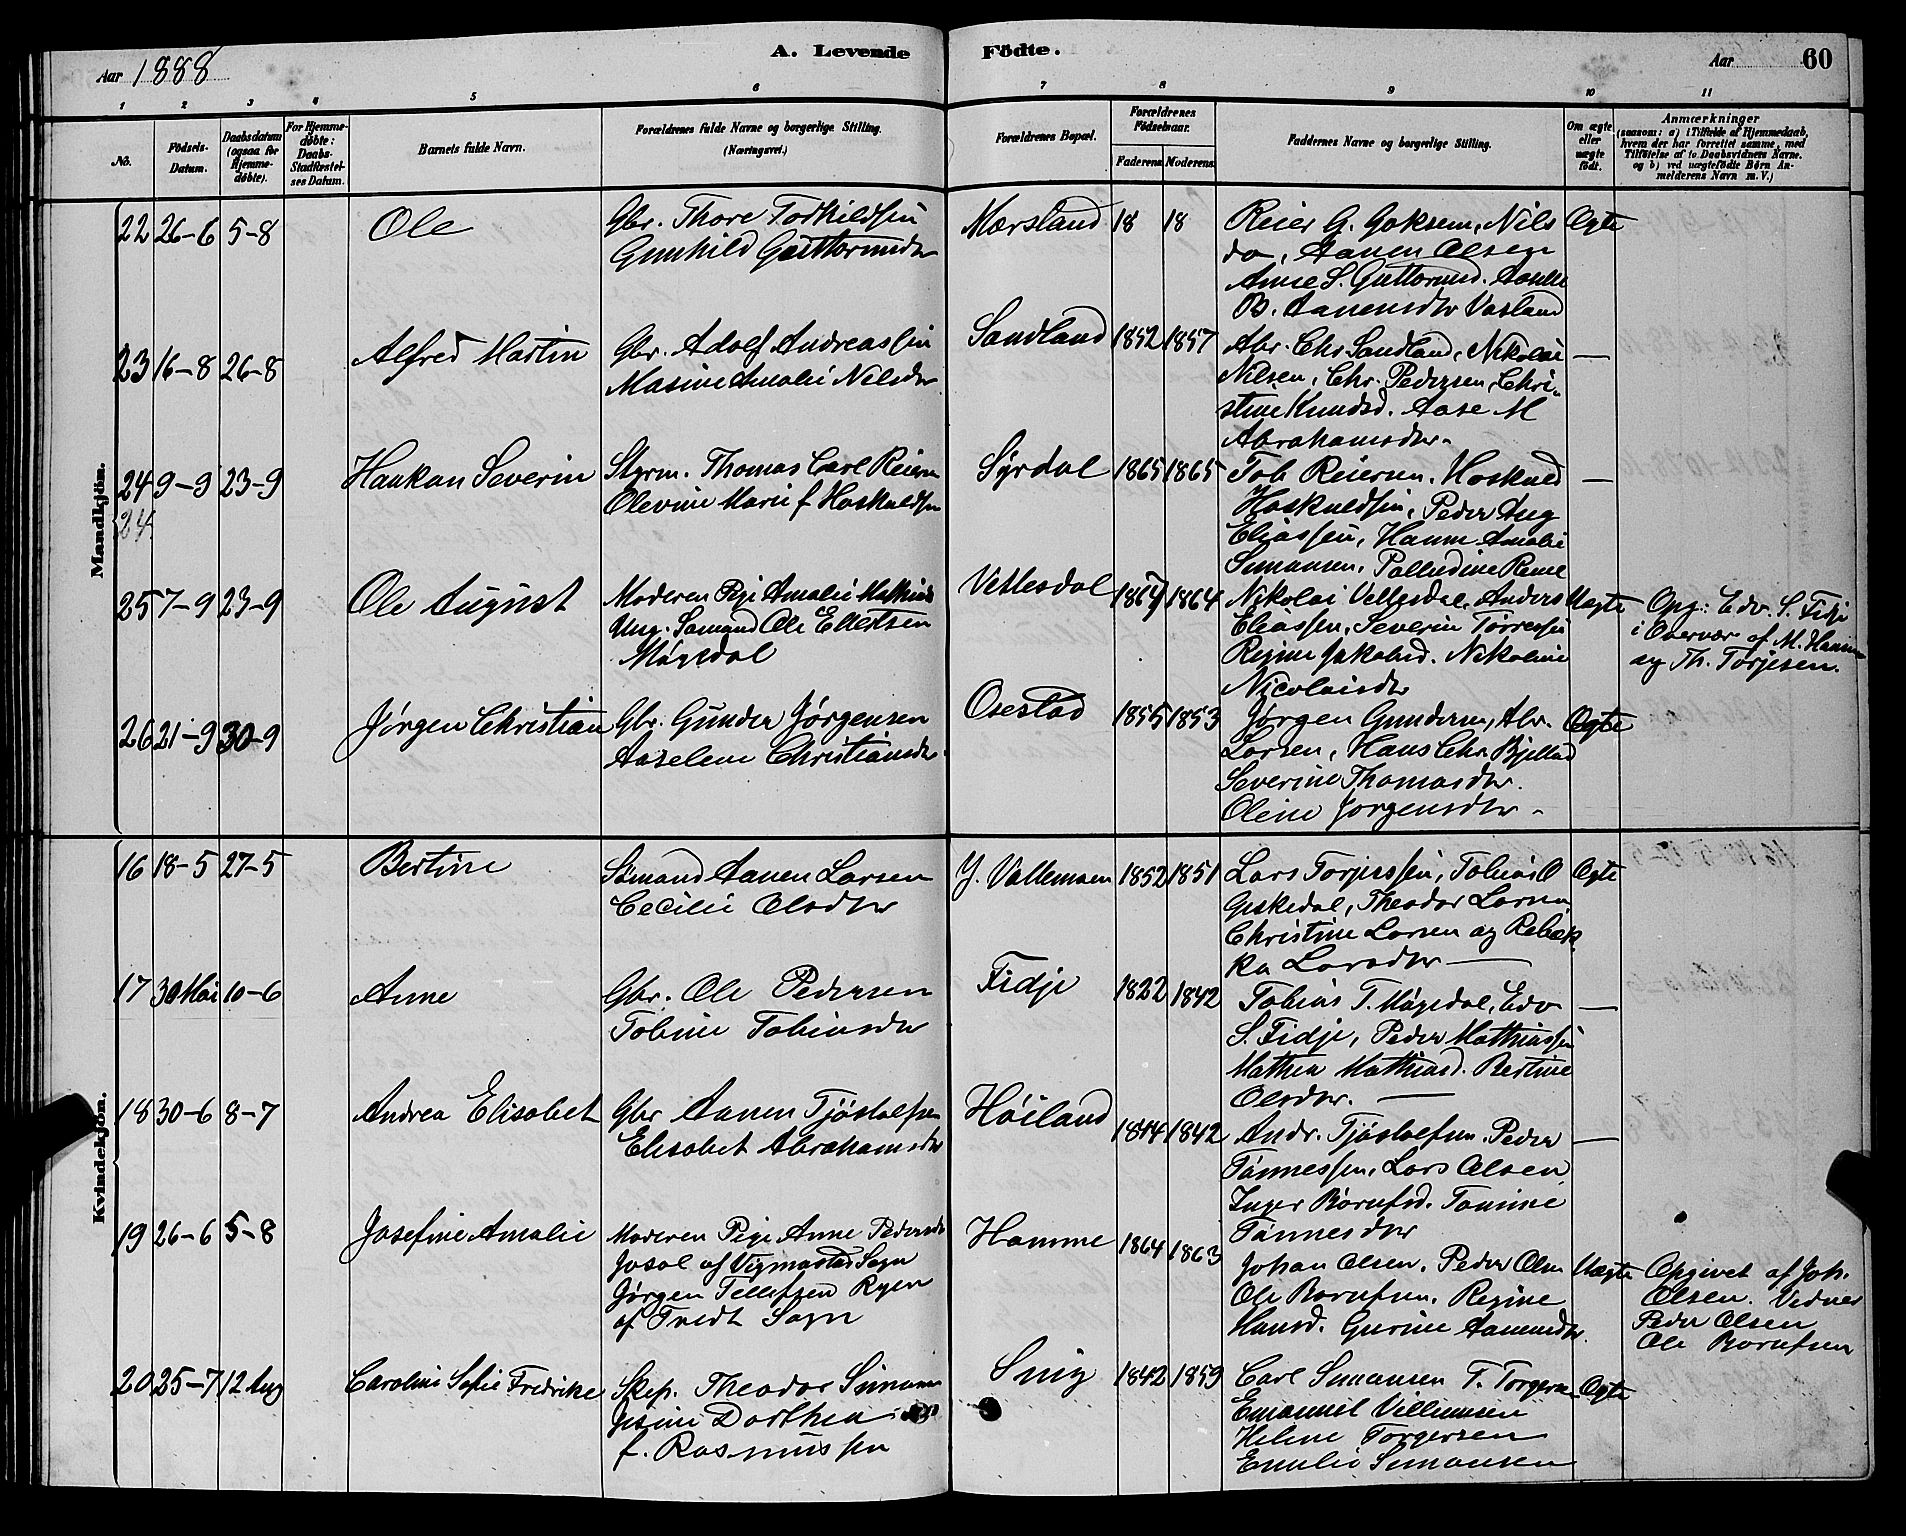 A. Levende Fødte.
Aar 1888
Aar 60
1 2 3 4 5 6 7 8 9 10 11
No.
Fødsels-Datum.
Daabsdatum (ogsaa for Hjemmedøbte).
For Hjemmedøbte: Daabs-Stadfæstelses Datum.
Barnets fulde Navn.
Forældrenes fulde Navne og borgerlige Stilling. (Næringsvei.)
Forældrenes Bopæl.
Forældrenes Fødselsaar.
Faderens. Moderens.
Faddernes Navne og borgerlige Stilling.
Om ægte eller uægte født.
Anmærkninger
(saasom: a) i Tilfælde af Hjemmedaab, hvem der har forrettet samme, med Tilføielse af to Daabsvidners Navne. og b) ved uægtefødte Børn Anmelderens Navn m. V.)
Mandkjøn.
22 26-6 5-8 Ole
Gbr. Thore Torkildsen
Gunhild Guttormsdtr
Mærsland 18 18
Reier G. Goksem, Nils
do, Aanen Olsen
Anne S. Guttormsd.
B. Aanensdtr Vasland
Ægte
23 16-8 26-8 Alfred Martin
Gbr. Adolf Andreassen
Masine Amalie Nilsdtr
Sandland 1852 1857
Abr. Chr Sandland, Nikolai
Nilsen, Chr. Pedersen, Chri-
stine Knudsd. Aase M
Abrahamsdtr.
—
24 9-9 23-9 Haakan Severin
24
Styrm. Thomas Carl Reiersen
Olevine Marie f Hoskuldsen
Syrdal 1865 1865
Tob Reiersen, Hoskuld
Hoskuldsen, Peder Aug
Eliassen, Hanne Amalie
Simonsen,
—
25 7-9 23-9 Ole August
Moderen Pige Amalie Mathiasd
Ung. Sømand Ole Ellertsen
Møgedal
Vetlesdal 1867 1864
Nikolai Vetlesdal, Anders
Eliassen, Severin Tørressen
Regine Jakobsd. Nikoline
Nicolaisdtr
Uægte
Opg: Edv. S. Fidje
i Overvær af M. Hansen
og Th. Torjesen.
26 21-9 30-9 Jørgen Christian
Gbr. Gunder Jørgensen
Aaselene Christiansdtr.
Osestad 1855 1853
Jørgen Gundersen, Abr.
Larsen, Hans Chr. Bjelland
Severine Thomasdtr.
Oline Jørgensdtr -
Ægte
Kvindekjøn.
16 18-5 27-5 Bertine
Sømand Aanen Larsen
Cecilie Olsdtr
Y. Vallemoen 1852 1851
Lars Torjussen, Tobias O
Geskedal, Theodor Larsen
Christine Larsen og Rebek
ka Larsdtr —
Ægte
17 30 Mai 10-6 Anne
Gbr. Ole Pedersen
Tobine Tobiasdtr
Fidje 1822 1842
Tobias T. Møgedal, Edv
S. Fidje, Peder Mathiassen
Mathea Mathiasd. Bertine
Olsdtr. —
—
18 30-6 8-7 Andrea Elisabet
Gbr Aanen Tjøstolfsen
Elisabet Abrahamsdtr
Høiland 1844 1842
Andr. Tjøstolfsen, Peder
Tønnessen, Lars Olsen
Inger Børufsd. Tomine
Tønnesdtr
—
19 26-6 5-8 Josefine Amalie
Moderen Pige Anne Pedersdtr
Josal af Vigmostad Sogn
Jørgen Tellefsen Ryen
af Tveit Sogn
Homme 1864 1863
Johan Olsen, Peder Olsen
Ole Børufsen, Regine
Hansd. Gurine Aamundsdtr.
Uægte
Opgivet af Joh.
Olsen. Vidner
Peder Olsen
Ole Børufsen
20 25-7 12 Aug Caroline Sofie Fredrike
Skip. Theodor Simonsen
Josine Dorthea
f. Rasmussen
Snig 1842 1859
Carl Simonsen T. Torgersen
Emanuel Villumsen
Helene Torgersen
Emilie Simonsen
Ægte